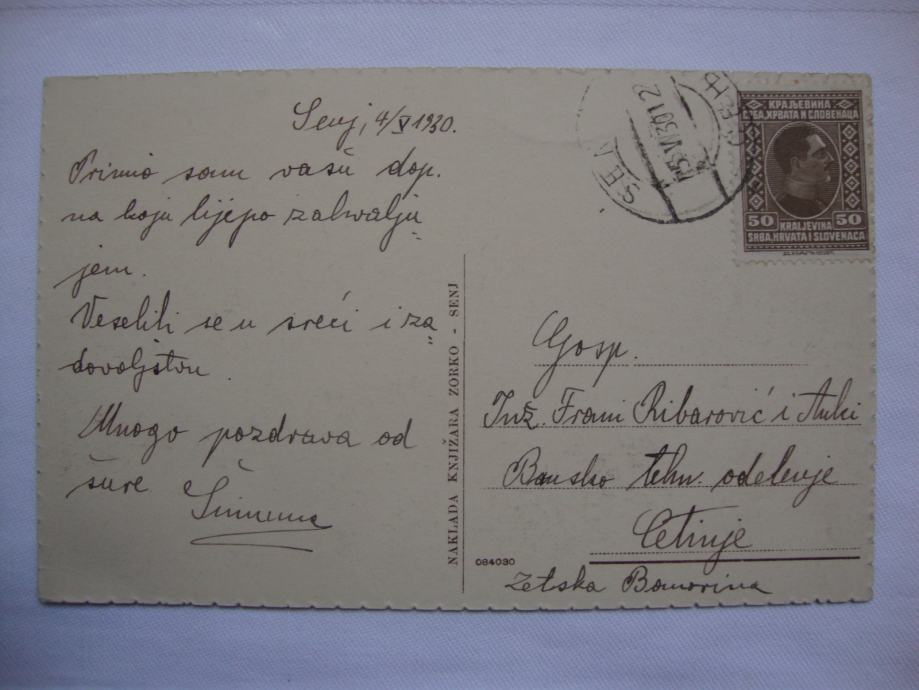 Senj, 4/V 1930.
Primio sam vašu dop.
na koju lijepo zahvalju
jem.
Veselili se u sreći i za
dovoljstvu.
Mnogo pozdrava od
šure
NAKLADA KNJIŽARA ZORKO - SENJ
084030
SENJ
СЕЊ
КРАЉЕВИНА
СРБА, ХРВАТА И СЛОВЕНАЦА
50 50
KRALJEVINA
SRBA, HRVATA I SLOVENACA
Gosp.
Inž. Frani Ribarović i Anki
Bansko tehn. odelenje
Cetinje
Zetska Banovina